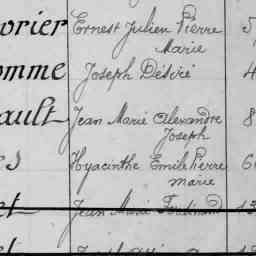 vrier Ernest Julien Pierre 5
Marie
omme Joseph Désiré 4
ault Jean Marie Alexandre 8
Joseph
es Hyacinthe Emile Pierre 6
Marie
et Jean Marie Ferdinand 13